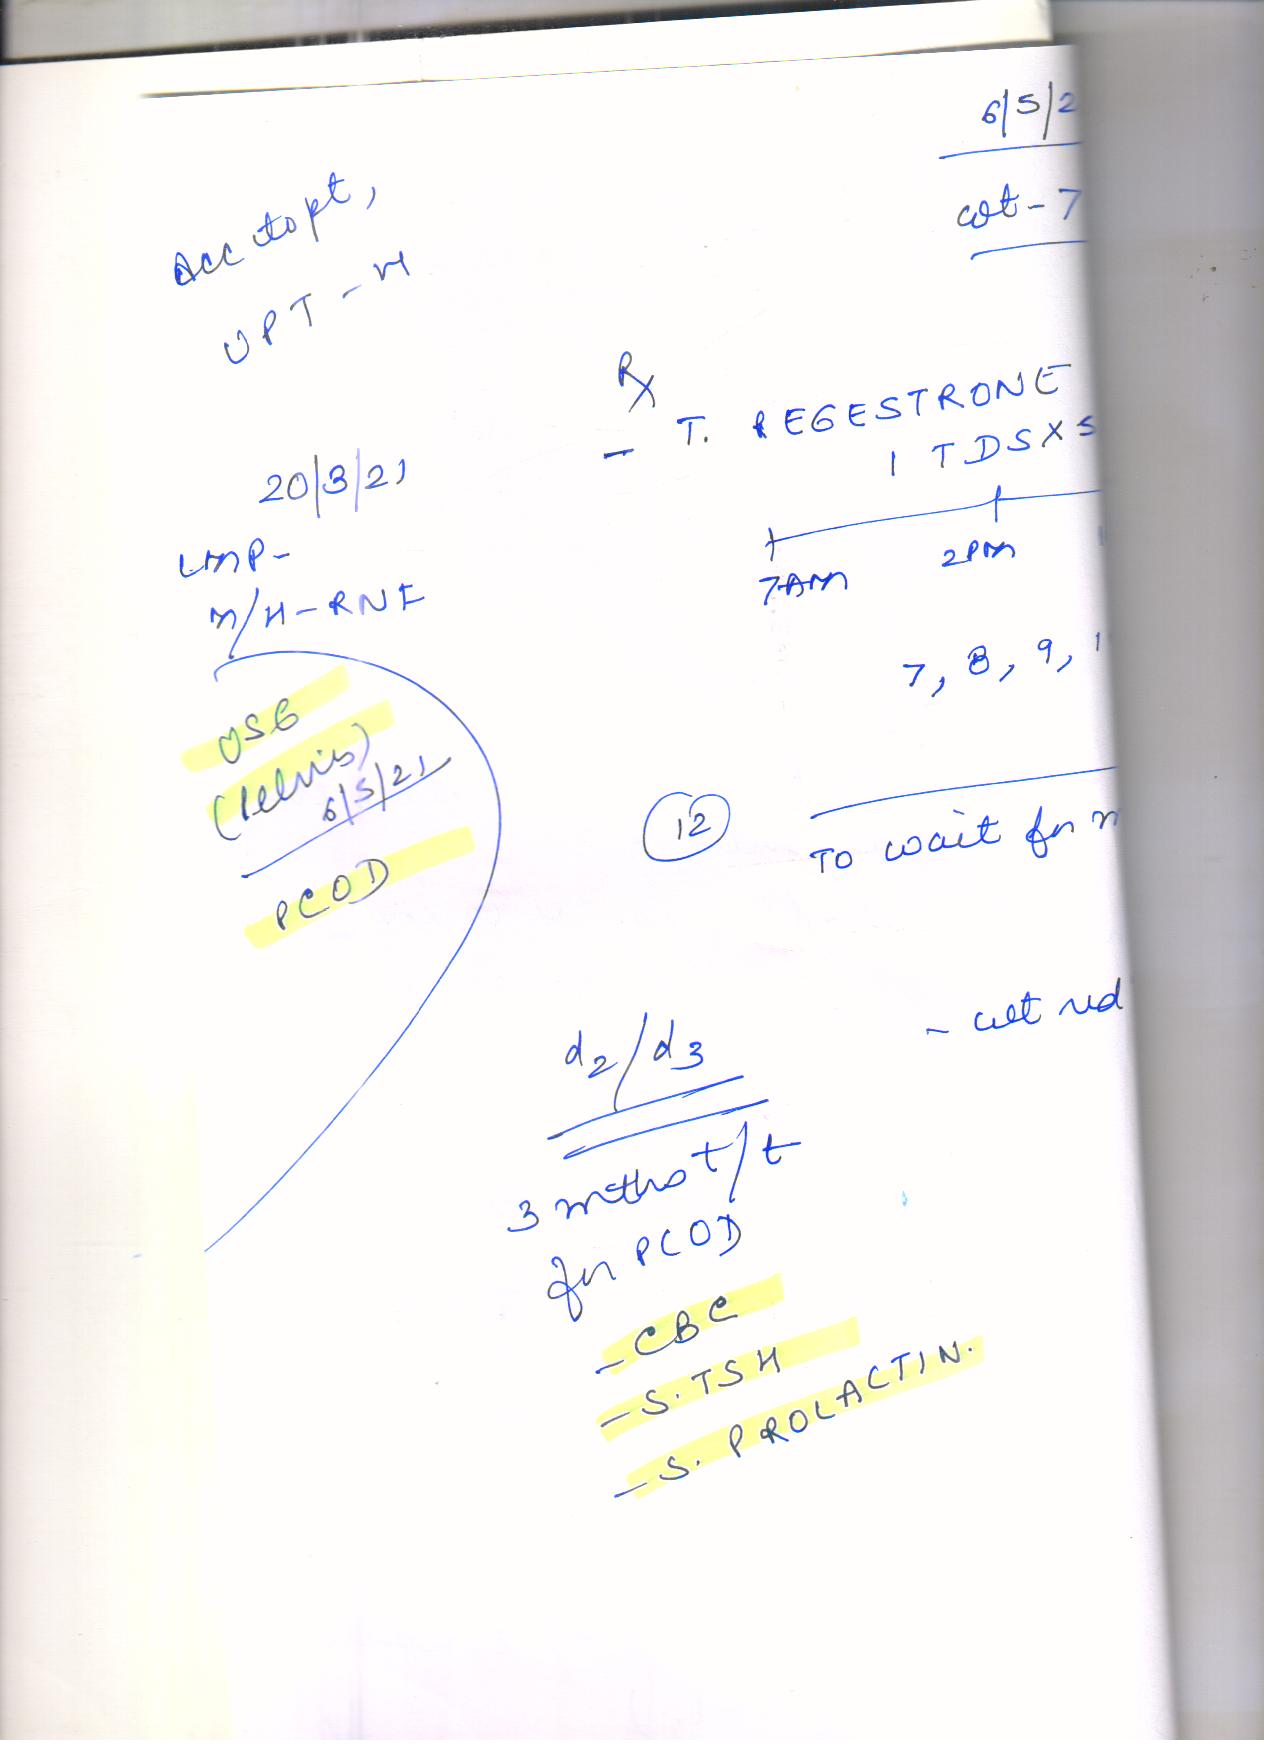 6/5/2
wt - 7
Acc to pt,
UPT - N
Rx
- T. REGESTRONE
1 TDS X 5
20/3/21
LMP -
7AM 2PM 1
M/H - RNF
7, 8, 9, 1
USG
(Pelvis)
6/5/21
PCOD
12
TO wait for m
- wt red
d2/d3
3 mths t/t
for PCOD
- CBC
- S. TSH
- S. PROLACTIN.